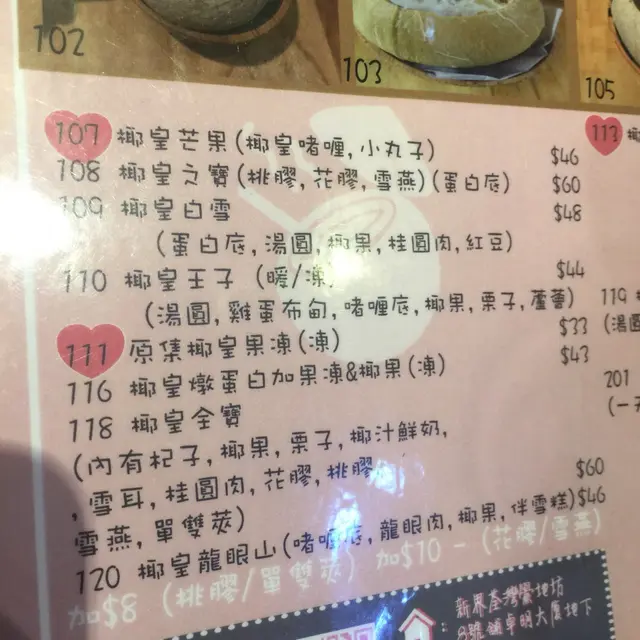 102
103
105
107 椰皇芒果(椰皇啫喱,小丸子) $46
108 椰皇之寶(桃膠,花膠,雪燕)(蛋白底) $60
109 椰皇白雪 $48
(蛋白底,湯圓,椰果,桂圓肉,紅豆)
110 椰皇王子 (暖/凍) $44
(湯圓,雞蛋布甸,啫喱底,椰果,栗子,蘆薈)
111 原隻椰皇果凍(凍) $33
116 椰皇燉蛋白加果凍&椰果(凍) $43
118 椰皇全寶
(內有杞子,椰果,栗子,椰汁鮮奶,
,雪耳,桂圓肉,花膠,桃膠 $60
雪燕,單雙莢)
120 椰皇龍眼山(啫喱底,龍眼肉,椰果,伴雪糕)$46
加$8 (桃膠/單雙莢) 加$10 - (花膠/雪燕)
113
119
(湯圓
201
(一
新界荃灣
地下